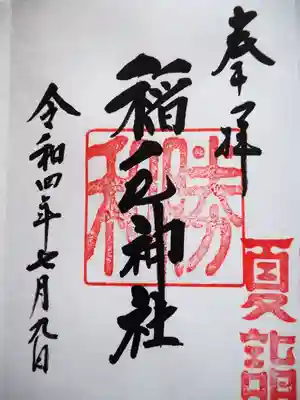 奉拝
稲毛神社
令和四年七月九日
夏詣